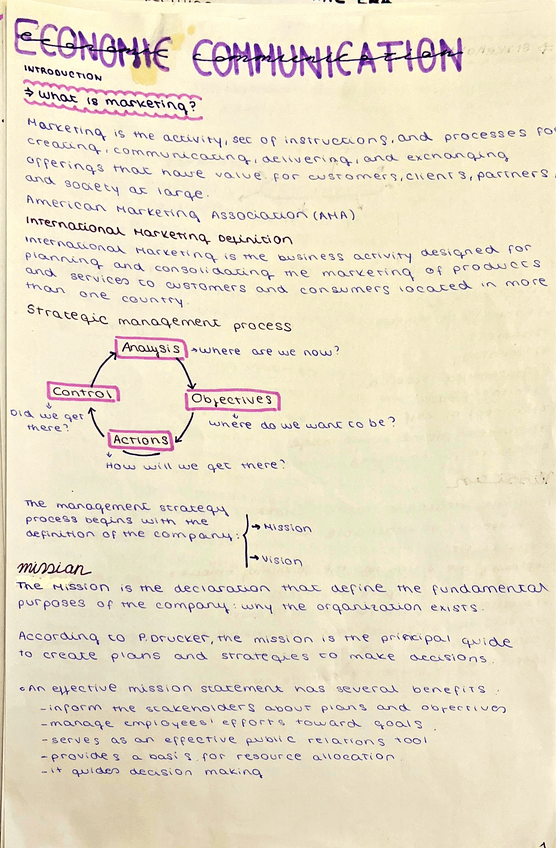 ECONOMIC COMMUNICATION
economic communication
INTRODUCTION
→ what is marketing?
Marketing is the activity, set of instructions, and processes for
creating, communicating, delivering, and exchanging
offerings that have value for customers, clients, partners,
and society at large.
American Marketing Association (AMA)
International Marketing Definition
International Marketing is the business activity designed for
planning and consolidating the marketing of products
and services to customers and consumers located in more
than one country.
Strategic management process
Analysis → where are we now?
Control
Objectives
Did we get
there?
where do we want to be?
Actions
How will we get there?
The management strategy
process begins with the
definition of the company:
→ Mission
→ Vision
mission
The Mission is the declaration that define the fundamental
purposes of the company: why the organization exists.
According to P. Drucker, the mission is the principal guide
to create plans and strategies to make decisions.
• An effective mission statement has several benefits.
- inform the stakeholders about plans and objectives
- manage employees' efforts toward goals.
- serves as an effective public relations tool
- provides a basis for resource allocation.
- it guides decision making